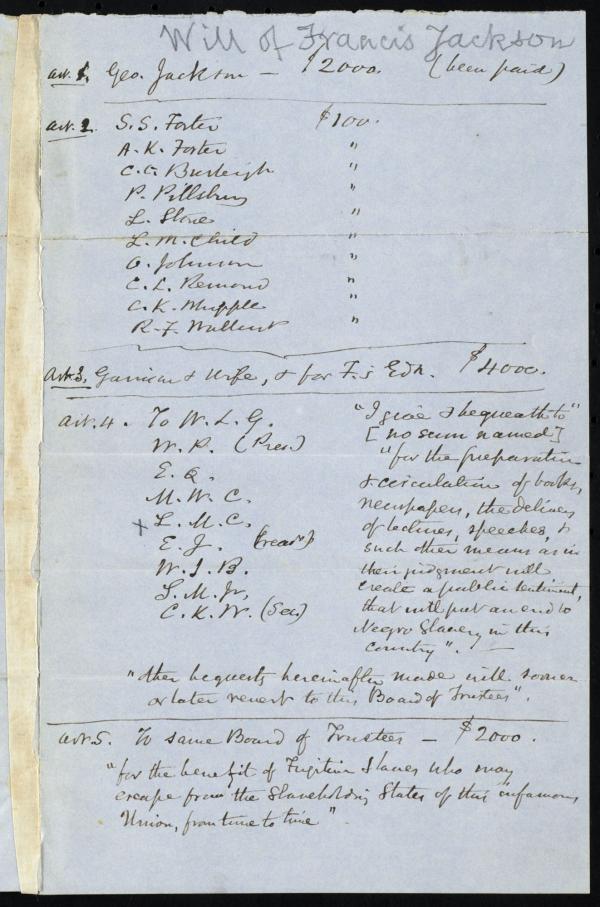 Will of Francis Jackson
Art. 1. Geo. Jackson — $2000. (been paid)
Art. 2. S. S. Foster $100.
A. K. Foster "
C. C. Burleigh "
P. Pillsbury "
L. Stone "
L. M. Child "
O. Johnson "
C. L. Remond "
C. K. Whipple "
R. F. Wallcut "
Art. 3. Garrison & Wife, & for F.'s Edn. $4000.
Art. 4. To W. L. G.
W. P. (Pres.)
E. Q.
M. W. C.
x L. M. C.
E. J. (Treasr.)
W. I. B.
S. M. Jr.
C. K. W. (Sec.)
"I give & bequeath to"
[no sum named]
"for the preparation
& circulation of books,
newspapers, the delivery
of lectures, speeches, &
such other means as in
their judgment will
create a public sentiment,
that will put an end to
Negro Slavery in this
country". —
"other bequests hereinafter made will sooner
or later revert to this Board of Trustees".
Art. 5. To same Board of Trustees — $2000.
"for the benefit of Fugitive Slaves who may
escape from the Slaveholding States of this infamous
Union, from time to time"